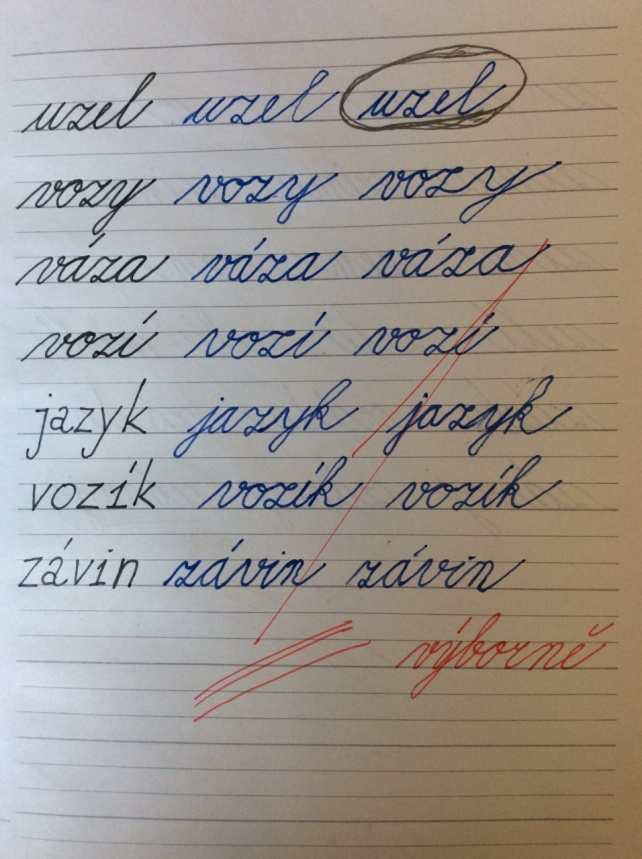 uzel uzel uzel
vozy vozy vozy
váza váza váza
vozí vozí vozí
jazyk jazyk jazyk
vozík vozík vozík
závin závin závin
výborně